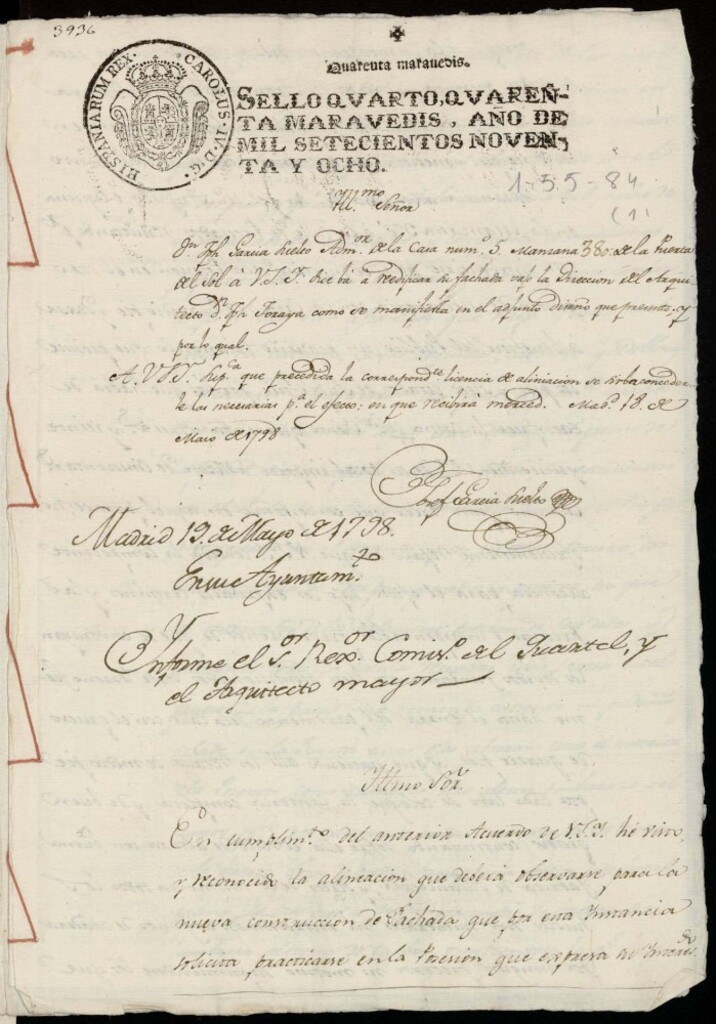 3936
HISPANIARUM REX. CAROLUS. IV. D. G.
Quarenta maravedis.
SELLO QVARTO, QVAREN-
TA MARAVEDIS, AÑO DE
MIL SETECIENTOS NOVEN-
TA Y OCHO.
1-55-84
(1)
Yllmo Señor
Dn Jph Garcia Admor de la Casa num.o 5. Manzana 380. de la Puerta
del Sol à V.S.Y. a redificar su fachada vajo la Direccion del Arqui-
tecto dn Jph Toraya como se manifiesta en el adjunto diseño que presenta, y
por lo qual.
A V.S.Y. Supca que precedida la correspondte licencia de aliniacion se sirba conceder
le las necesarias pa el efecto; en que recibirà merced. Madd 18 de
Maio de 1798
Josef Garcia
Madrid 19. de Mayo de 1798.
En su Ayuntamto
Ynforme el Sor Rexor Comiso del Quartel, y
el Arquitecto mayor
Yllmo Sor
En cumplimto del anterior Acuerdo de V.S.Y. he visto,
y reconocido la alineacion que deberá observarse para la
nueva construccion de Fachada que por esta Ynstancia
solicita practicarse en la Posesion que expresa su Ynteresdo